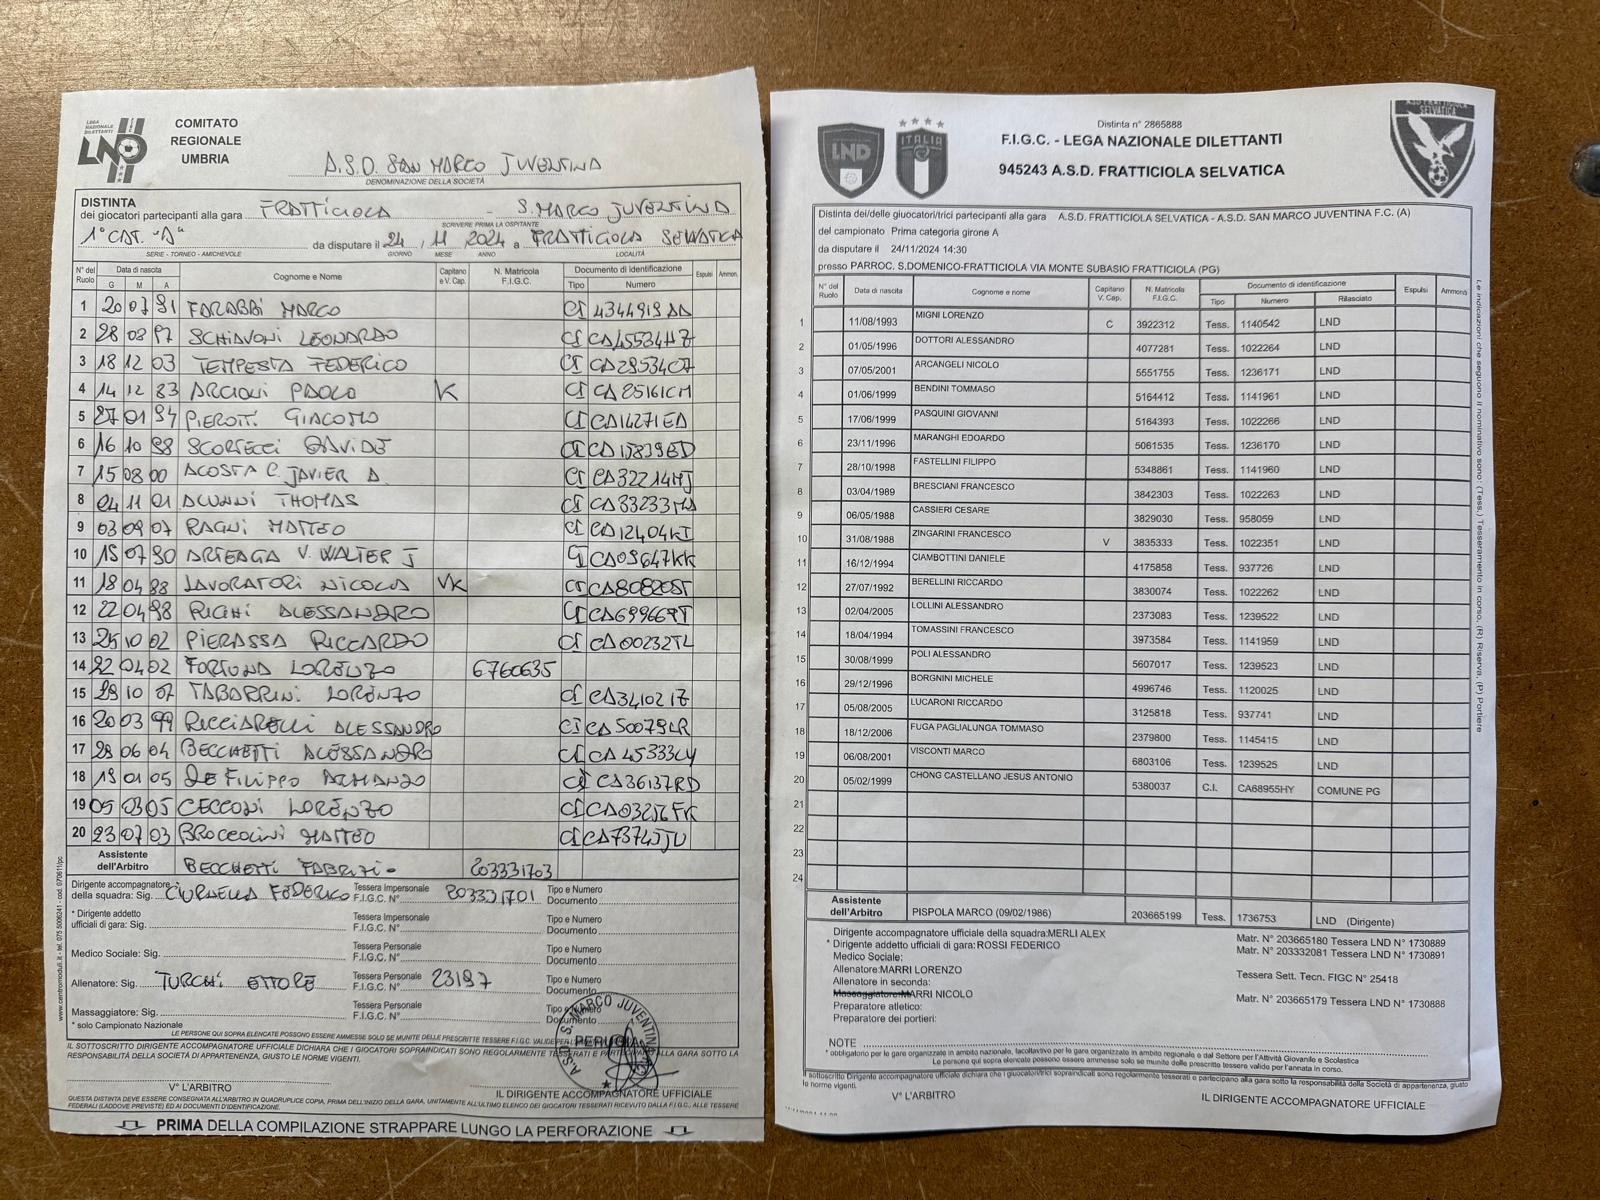 LEGA
NAZIONALE
DILETTANTI
LND
COMITATO
REGIONALE
UMBRIA
A.S.D. SAN MARCO JUVENTINA
DENOMINAZIONE DELLA SOCIETÀ
DISTINTA
dei giocatori partecipanti alla gara FRATTICIOLA - S. MARCO JUVENTINA
SCRIVERE PRIMA LA OSPITANTE
1° CAT. "A" da disputare il 24 / 11 2024 a FRATTICIOLA SELVATICA
SERIE - TORNEO - AMICHEVOLE GIORNO MESE ANNO LOCALITÀ
N° del Ruolo Data di nascita G M A Cognome e Nome Capitano e V. Cap. N. Matricola F.I.G.C. Documento di identificazione Tipo Numero Espulsi Ammon.
1 20 07 91 FARABBI MARCO CI 4344919AA
2 28 08 97 SCHIAVONI LEONARDO CI CA45534HZ
3 18 12 03 TEMPESTA FEDERICO CI
4 14 12 83 ARCIONI PAOLO K CI CA85161CM
5 27 01 94 PIEROTTI GIACOMO CI CA14271EA
6 16 10 98 SCORTECCI DAVIDE CI CA15839ED
7 15 08 00 ACOSTA C. JAVIER A. CI CA32214MJ
8 04 11 01 ALUNNI THOMAS CI
9 03 09 07 RAGNI MATTEO CI CA12404KI
10 19 07 90 ARTEAGA V. WALTER J CI CA09647KK
11 18 04 88 LAVORATORI NICOLA VK CI CA80820ST
12 22 04 98 RIGHI ALESSANDRO CI
13 25 10 02 PIERASSA RICCARDO CI CA00232TL
14 22 04 02 FORTUNA LORENZO 6760635
15 29 10 07 TABARRINI LORENZO CI CA34102IZ
16 20 03 99 RICCIARELLI ALESSANDRO CI CA50079LR
17 28 06 04 BECCHETTI ALESSANDRO CI CA45333LY
18 19 01 05 DE FILIPPO ARMANDO CI CA36137RD
19 05 03 05 CECCONI LORENZO CI
20 23 07 03 BROCCOLINI MATTEO CI
Assistente dell'Arbitro BECCHETTI FABRIZIO 203331703
Dirigente accompagnatore della squadra: Sig. CIURNELLA FEDERICO Tessera Impersonale F.I.G.C. N° 203331701 Tipo e Numero Documento
* Dirigente addetto ufficiali di gara: Sig. Tessera Impersonale F.I.G.C. N° Tipo e Numero Documento
Medico Sociale: Sig. Tessera Personale F.I.G.C. N° Tipo e Numero Documento
Allenatore: Sig. TURCHI ETTORE Tessera Personale F.I.G.C. N° 23197 Tipo e Numero Documento
Massaggiatore: Sig. Tessera Personale F.I.G.C. N° Tipo e Numero Documento
* solo Campionato Nazionale
LE PERSONE QUI SOPRA ELENCATE POSSONO ESSERE AMMESSE SOLO SE MUNITE DELLE PRESCRITTE TESSERE F.I.G.C. VALIDE PER
IL SOTTOSCRITTO DIRIGENTE ACCOMPAGNATORE UFFICIALE DICHIARA CHE I GIOCATORI SOPRAINDICATI SONO REGOLARMENTE TESSERATI E PARTECIPANO ALLA GARA SOTTO LA
RESPONSABILITÀ DELLA SOCIETÀ DI APPARTENENZA, GIUSTO LE NORME VIGENTI.
A.S.D. S. MARCO JUVENTINA
PERUGIA
V° L'ARBITRO IL DIRIGENTE ACCOMPAGNATORE UFFICIALE
QUESTA DISTINTA DEVE ESSERE CONSEGNATA ALL'ARBITRO IN QUADRUPLICE COPIA, PRIMA DELL'INIZIO DELLA GARA, UNITAMENTE ALL'ULTIMO ELENCO DEI GIOCATORI TESSERATI RICEVUTO DALLA F.I.G.C., ALLE TESSERE
FEDERALI (LADDOVE PREVISTE) ED AI DOCUMENTI D'IDENTIFICAZIONE.
PRIMA DELLA COMPILAZIONE STRAPPARE LUNGO LA PERFORAZIONE
www.centromoduli.it - tel. 075 5006241 - cod. 070611/pc
LND
ITALIA
SELVATICA
Distinta n° 2865888
F.I.G.C. - LEGA NAZIONALE DILETTANTI
945243 A.S.D. FRATTICIOLA SELVATICA
Distinta dei/delle giuocatori/trici partecipanti alla gara A.S.D. FRATTICIOLA SELVATICA - A.S.D. SAN MARCO JUVENTINA F.C. (A)
del campionato Prima categoria girone A
da disputare il 24/11/2024 14:30
presso PARROC. S.DOMENICO-FRATTICIOLA VIA MONTE SUBASIO FRATTICIOLA (PG)
N° del Ruolo Data di nascita Cognome e nome Capitano V. Cap. N. Matricola F.I.G.C. Documento di identificazione Tipo Numero Rilasciato Espulsi Ammoniti
1 11/08/1993 MIGNI LORENZO C 3922312 Tess. 1140542 LND
2 01/05/1996 DOTTORI ALESSANDRO 4077281 Tess. 1022264 LND
3 07/05/2001 ARCANGELI NICOLO 5551755 Tess. 1236171 LND
4 01/06/1999 BENDINI TOMMASO 5164412 Tess. 1141961 LND
5 17/06/1999 PASQUINI GIOVANNI 5164393 Tess. 1022266 LND
6 23/11/1996 MARANGHI EDOARDO 5061535 Tess. 1236170 LND
7 28/10/1998 FASTELLINI FILIPPO 5348861 Tess. 1141960 LND
8 03/04/1989 BRESCIANI FRANCESCO 3842303 Tess. 1022263 LND
9 06/05/1988 CASSIERI CESARE 3829030 Tess. 958059 LND
10 31/08/1988 ZINGARINI FRANCESCO V 3835333 Tess. 1022351 LND
11 16/12/1994 CIAMBOTTINI DANIELE 4175858 Tess. 937726 LND
12 27/07/1992 BERELLINI RICCARDO 3830074 Tess. 1022262 LND
13 02/04/2005 LOLLINI ALESSANDRO 2373083 Tess. 1239522 LND
14 18/04/1994 TOMASSINI FRANCESCO 3973584 Tess. 1141959 LND
15 30/08/1999 POLI ALESSANDRO 5607017 Tess. 1239523 LND
16 29/12/1996 BORGNINI MICHELE 4996746 Tess. 1120025 LND
17 05/08/2005 LUCARONI RICCARDO 3125818 Tess. 937741 LND
18 18/12/2006 FUGA PAGLIALUNGA TOMMASO 2379800 Tess. 1145415 LND
19 06/08/2001 VISCONTI MARCO 6803106 Tess. 1239525 LND
20 05/02/1999 CHONG CASTELLANO JESUS ANTONIO 5380037 C.I. CA68955HY COMUNE PG
21
22
23
24
Assistente dell'Arbitro PISPOLA MARCO (09/02/1986) 203665199 Tess. 1736753 LND (Dirigente)
Dirigente accompagnatore ufficiale della squadra:MERLI ALEX Matr. N° 203665180 Tessera LND N° 1730889
* Dirigente addetto ufficiali di gara:ROSSI FEDERICO Matr. N° 203332081 Tessera LND N° 1730891
Medico Sociale:
Allenatore:MARRI LORENZO Tessera Sett. Tecn. FIGC N° 25418
Allenatore in seconda:
Massaggiatore:MARRI NICOLO Matr. N° 203665179 Tessera LND N° 1730888
Preparatore atletico:
Preparatore dei portieri:
NOTE
* obbligatorio per le gare organizzate in ambito nazionale, facoltativo per le gare organizzate in ambito regionale e dal Settore per l'Attività Giovanile e Scolastica
Le persone qui sopra elencate possono essere ammesse solo se munite delle prescritte tessere valide per l'annata in corso.
Il sottoscritto Dirigente accompagnatore ufficiale dichiara che i giuocatori/trici sopraindicati sono regolarmente tesserati e partecipano alla gara sotto la responsabilità della Società di appartenenza, giusto
le norme vigenti.
V° L'ARBITRO IL DIRIGENTE ACCOMPAGNATORE UFFICIALE
Le indicazioni che seguono il nominativo sono: (Tess.) Tesseramento in corso, (R) Riserva, (P) Portiere